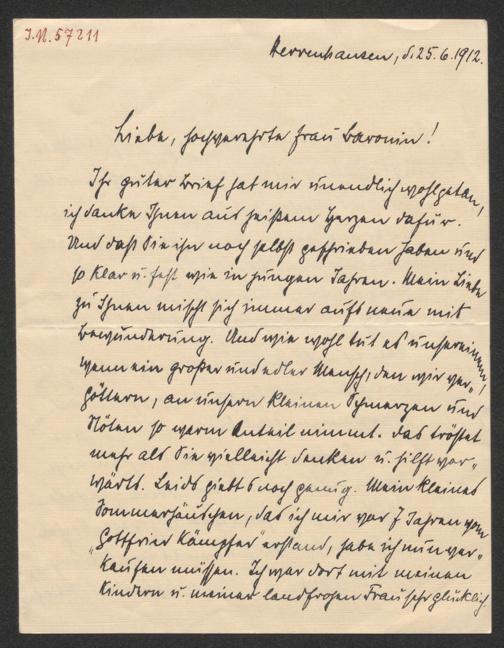 I.N. 57211
Herrenhausen, d. 25.6.1912.
Liebe, hochverehrte Frau Baronin!
Ihr guter Brief hat mir unendlich wohlgetan,
ich danke Ihnen aus heißem Herzen dafür.
Und daß Sie ihn noch selbst geschrieben haben und
so klar u. fest wie in jungen Jahren. Mein Liebe
zu Ihnen mischt sich immer aufs neue mit
Bewunderung. Und wie wohl tut es unsereinem,
wenn ein großer und edler Mensch, den wir ver-
göttern, an unsern kleinen Schmerzen und
Nöten so warm Anteil nimmt. Das tröstet
mehr als Sie vielleicht denken u. hilft vor-
wärts. Leids giebt's noch genug. Mein kleines
Sommerhäuschen, das ich mir vor 7 Jahren vom
„Gottfried Kämpfer“ erstand, habe ich nun ver-
kaufen müssen. Ich war dort mit meinen
Kindern u. meiner landfrohen Frau sehr glücklich.